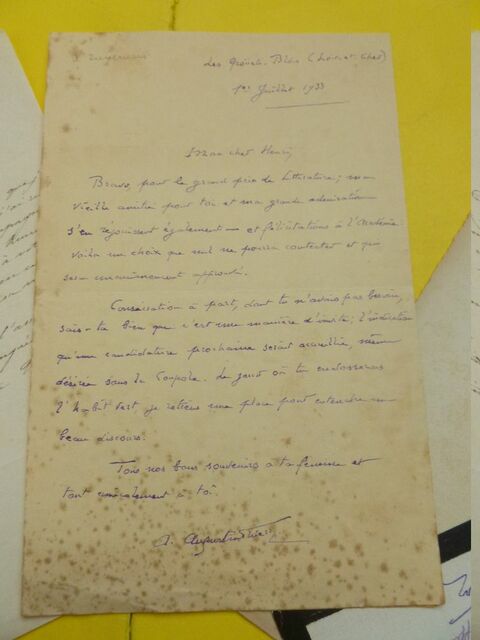 Les Grouëts - Blois (Loir-et-Cher)
1er Juillet 1933
Mon cher Henri,
Bravo, pour le grand prix de Littérature ; ma
vieille amitié pour toi et ma grande admiration
s'en réjouissent également — et félicitations à l'Académie.
Voilà un choix que nul ne pourra contester et qui
sera unanimement approuvé.
Consécration à part, dont tu n'avais pas besoin,
sais-tu bien que c'est une manière d'invite ; l'indication
qu'une candidature prochaine serait accueillie, même
désirée sous la Coupole. Le jour où tu endosseras
l'habit vert, je retiens une place pour entendre un
beau discours.
Tous nos bons souvenirs à ta femme et
tout amicalement à toi.
A. Augustin-Thierry